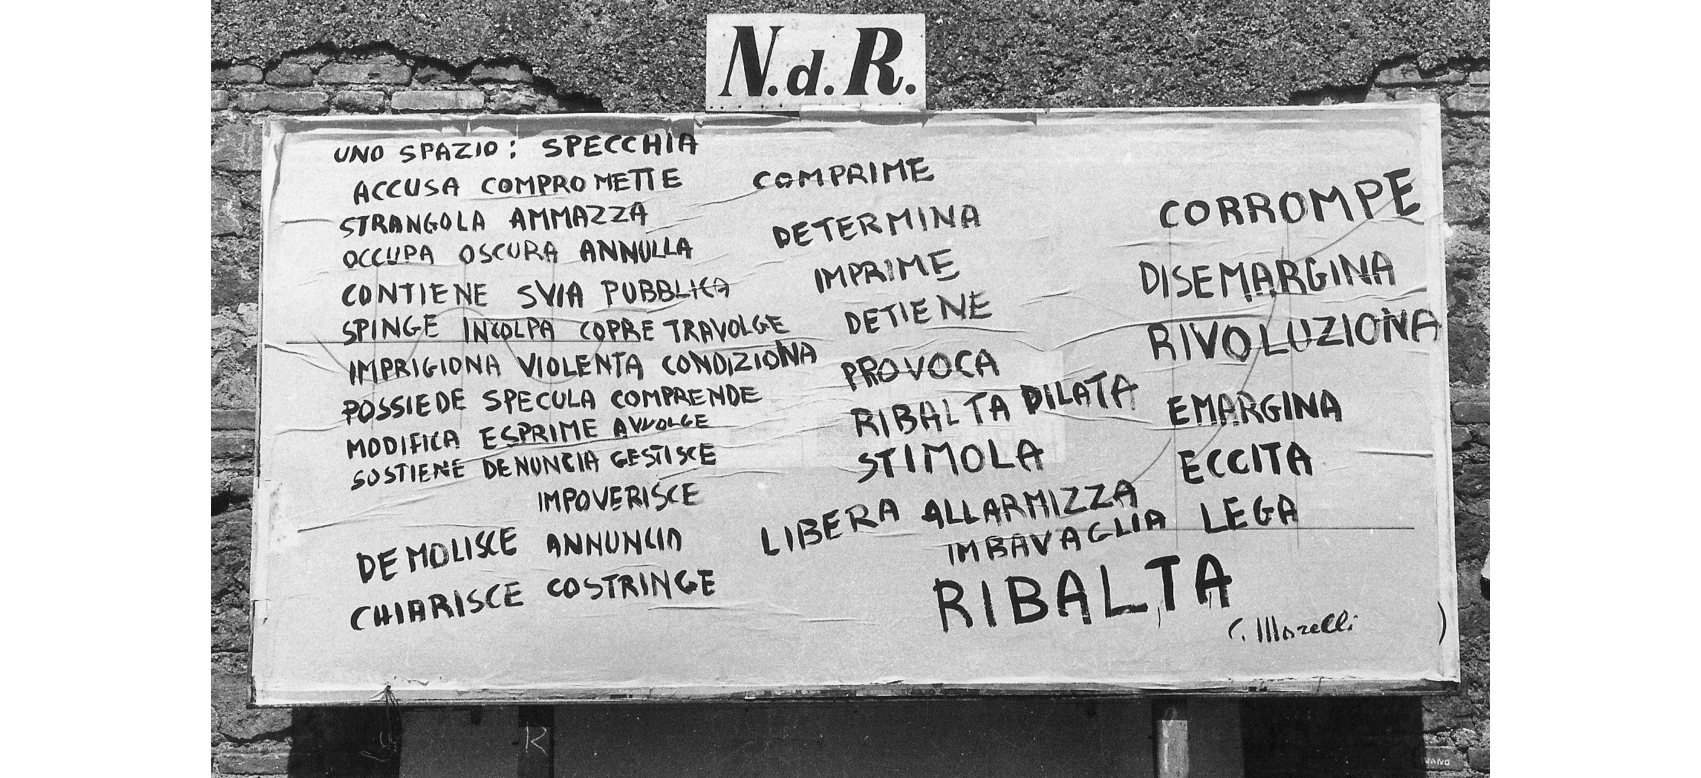 N.d.R.
UNO SPAZIO: SPECCHIA
ACCUSA COMPROMETTE
STRANGOLA AMMAZZA
OCCUPA OSCURA ANNULLA
CONTIENE SVIA PUBBLICA
SPINGE INCOLPA COPRE TRAVOLGE
IMPRIGIONA VIOLENTA CONDIZIONA
POSSIEDE SPECULA COMPRENDE
MODIFICA ESPRIME AVVOLGE
SOSTIENE DENUNCIA GESTISCE
IMPOVERISCE
DEMOLISCE ANNUNCIA
CHIARISCE COSTRINGE
COMPRIME
DETERMINA
IMPRIME
DETIENE
PROVOCA
RIBALTA DILATA
STIMOLA
LIBERA ALLARMIZZA
IMBAVAGLIA
RIBALTA
CORROMPE
DISEMARGINA
RIVOLUZIONA
EMARGINA
ECCITA
LEGA
C. Morelli
R